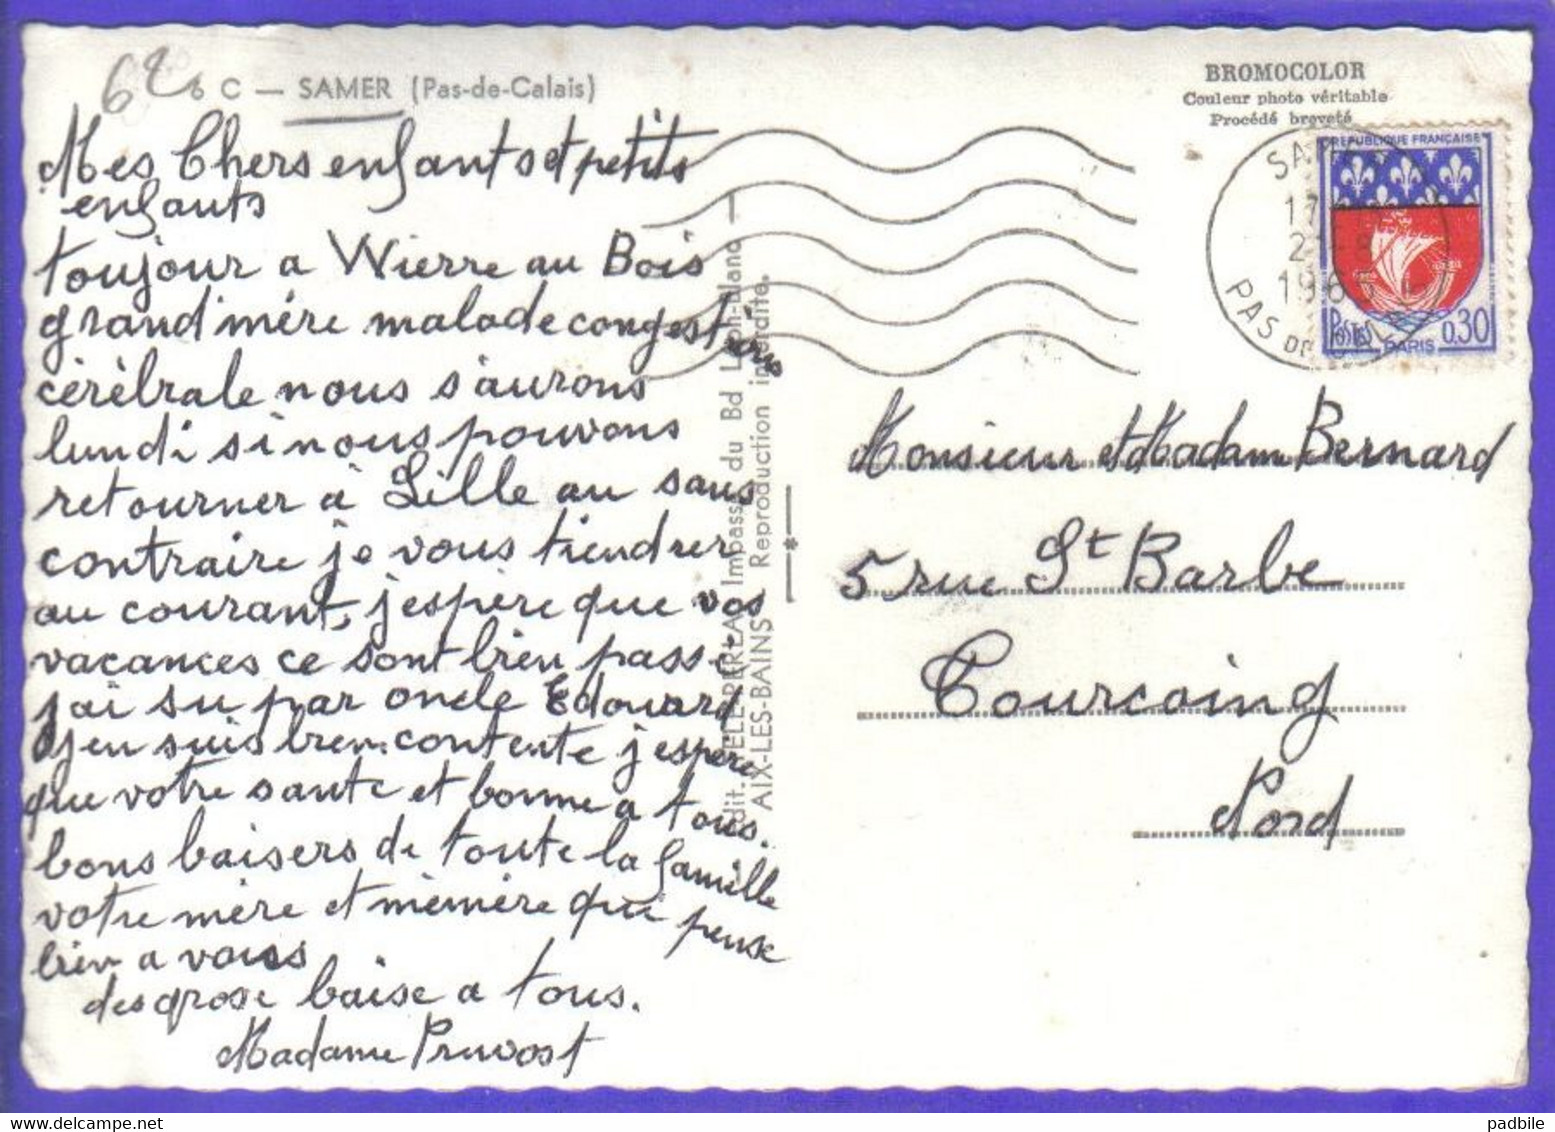 62 6 C — SAMER (Pas-de-Calais)
Mes Chers enfants et petits
enfants
toujour a Wierre au Bois
grand'mére malade congestion
cérébrale nous s'aurons
lundi si nous pouvons
retourner à Lille au sans
contraire je vous tiendrer
au courant, j'espère que vos
vacances ce sont bien passé
j'ai su par oncle Edouard
j'en suis bien contente j'espère
que votre santé et bonne a tous.
bons baisers de toute la famille
votre mère et mémère qui pense
bien a vous
des grose baise a tous.
Madame Pruvost
BROMOCOLOR
Couleur photo véritable
Procédé breveté
RÉPUBLIQUE FRANÇAISE
POSTES 0,30
PARIS
SA
17
2
196
PAS DE
Impasse du Bd
AIX-LES-BAINS Reproduction interdite.
Monsieur et Madame Bernard
5 rue St Barbe
Tourcoing
Nord
padbile
www.delcampe.net